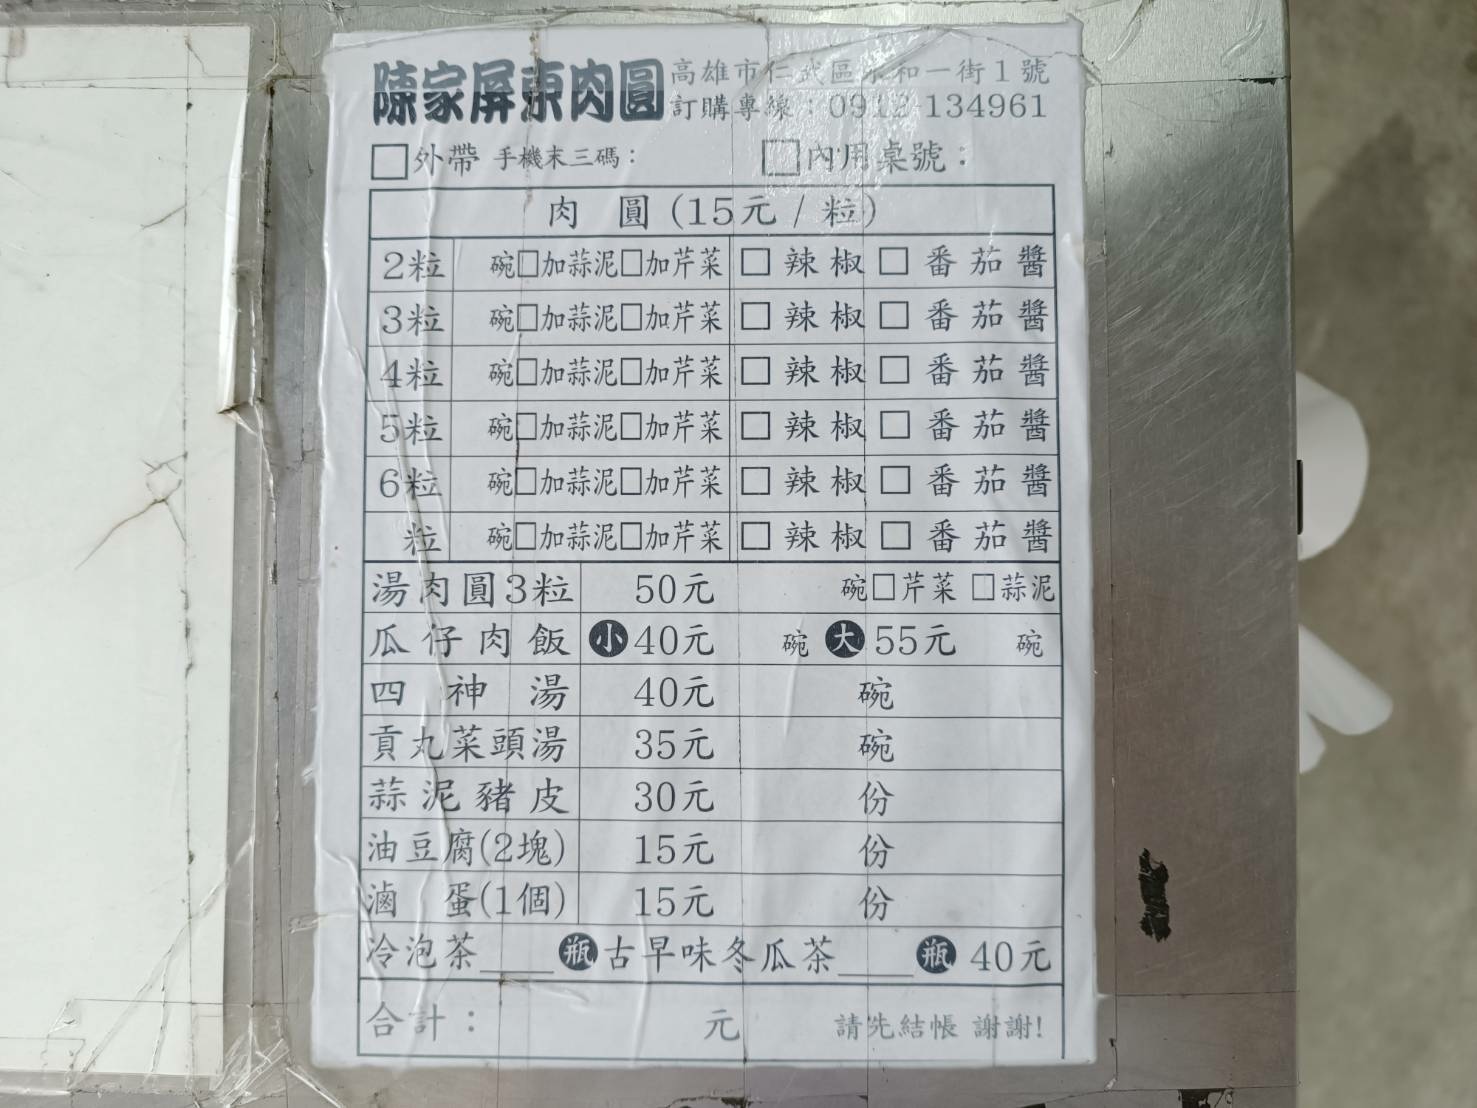 陳家屏東肉圓 高雄市仁武區永和一街1號
訂購專線：0912-134961
□外帶 手機末三碼： □內用桌號：
肉 圓 (15元 / 粒)
2粒 碗□加蒜泥□加芹菜 □ 辣椒 □ 番茄醬
3粒 碗□加蒜泥□加芹菜 □ 辣椒 □ 番茄醬
4粒 碗□加蒜泥□加芹菜 □ 辣椒 □ 番茄醬
5粒 碗□加蒜泥□加芹菜 □ 辣椒 □ 番茄醬
6粒 碗□加蒜泥□加芹菜 □ 辣椒 □ 番茄醬
粒 碗□加蒜泥□加芹菜 □ 辣椒 □ 番茄醬
湯肉圓3粒 50元 碗□芹菜 □蒜泥
瓜仔肉飯 小 40元 碗 大 55元 碗
四神湯 40元 碗
貢丸菜頭湯 35元 碗
蒜泥豬皮 30元 份
油豆腐(2塊) 15元 份
滷 蛋(1個) 15元 份
冷泡茶____瓶 古早味冬瓜茶____瓶 40元
合計： 元 請先結帳 謝謝!